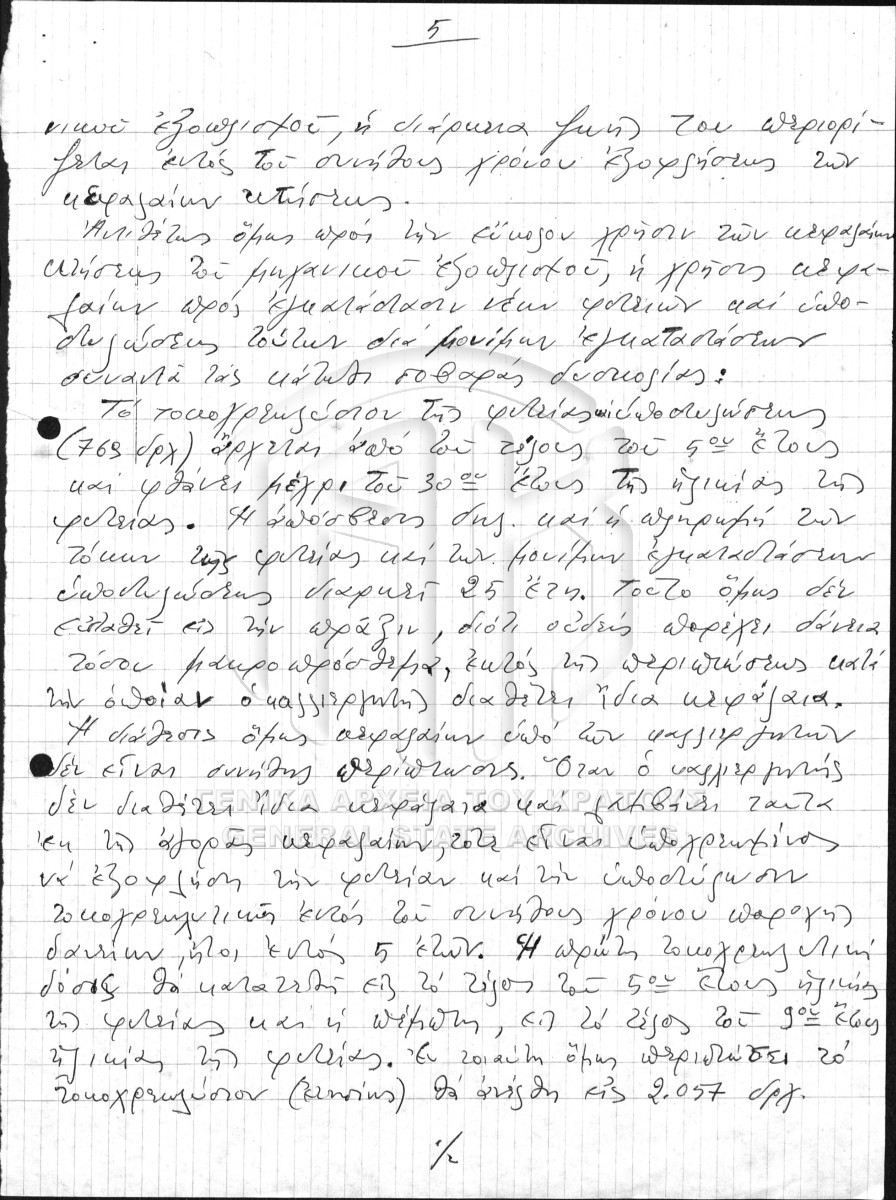 5
νικοῦ ἐξοπλισμοῦ, ἡ διάρκεια ζωῆς του περιορί-
ζεται ἐντός τοῦ συνήθους χρόνου ἐξοφλήσεως τῶν
κεφαλαίων κτήσεως.
Ἀντιθέτως ὅμως πρός τήν εὔκολον χρῆσιν τῶν κεφαλαίων
κτήσεως τοῦ μηχανικοῦ ἐξοπλισμοῦ, ἡ χρῆσις κεφα-
λαίων πρός ἐγκατάστασιν νέων φυτειῶν καί ὑπο-
στυλώσεως τούτων διά μονίμων ἐγκαταστάσεων
συναντᾶ τάς κάτωθι σοβαράς δυσκολίας:
Τό τοκοχρεωλύσιον τῆς φυτείας καί ὑποστυλώσεως
(769 δρχ) ἄρχεται ἀπό τοῦ τέλους τοῦ 5ου ἔτους
καί φθάνει μέχρι τοῦ 30ου ἔτους τῆς ἡλικίας τῆς
φυτείας. Ἡ ἀπόσβεσις δηλ. καί ἡ πληρωμή τῶν
τόκων τῆς φυτείας καί τῶν μονίμων ἐγκαταστάσεων
ὑποστυλώσεως διαρκεῖ 25 ἔτη. Τοῦτο ὅμως δέν
εὐσταθεῖ εἰς τήν πρᾶξιν, διότι οὐδείς παρέχει δάνεια
τόσον μακροπρόθεσμα, ἐκτός τῆς περιπτώσεως κατά
τήν ὁποίαν ὁ καλλιεργητής διαθέτει ἴδια κεφάλαια.
Ἡ διάθεσις ὅμως κεφαλαίων ὑπό τῶν καλλιεργητῶν
δέν εἶναι συνήθης περίπτωσις. Ὅταν ὁ καλλιεργητής
δέν διαθέτει ἴδια κεφάλαια καί λαμβάνει ταῦτα
ἐκ τῆς ἀγορᾶς κεφαλαίων, τότε εἶναι ὑποχρεωμένος
νά ἐξοφλήση τήν φυτείαν καί τήν ὑποστύλωσιν
τοκοχρεωλυτικῶς ἐντός τοῦ συνήθους χρόνου παροχῆς
δανείων, ἤτοι ἐντός 5 ἐτῶν. Ἡ πρώτη τοκοχρεωλυτική
δόσις θά κατατεθῆ εἰς τό τέλος τοῦ 5ου ἔτους ἡλικίας
τῆς φυτείας καί ἡ πέμπτη, εἰς τό τέλος τοῦ 9ου ἔτους
ἡλικίας τῆς φυτείας. Ἐν τοιαύτη ὅμως περιπτώσει τό
τοκοχρεωλύσιον (ἐτησίως) θά ἀνέλθη εἰς 2.057 δρχ.
./.
ΓΕΝΙΚΑ ΑΡΧΕΙΑ ΤΟΥ ΚΡΑΤΟΥΣ
GENERAL STATE ARCHIVES